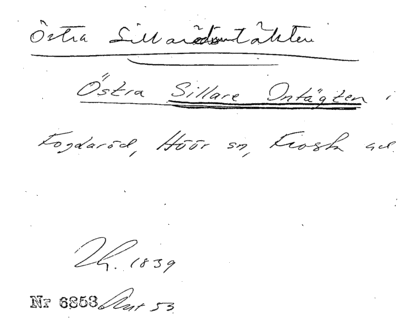 Östra Sillaröd
Östra Sillare Ontägten i
Fogdaröd, Höör sn, Frosta hd
Th. 1839
Nr 6858 Ant 53